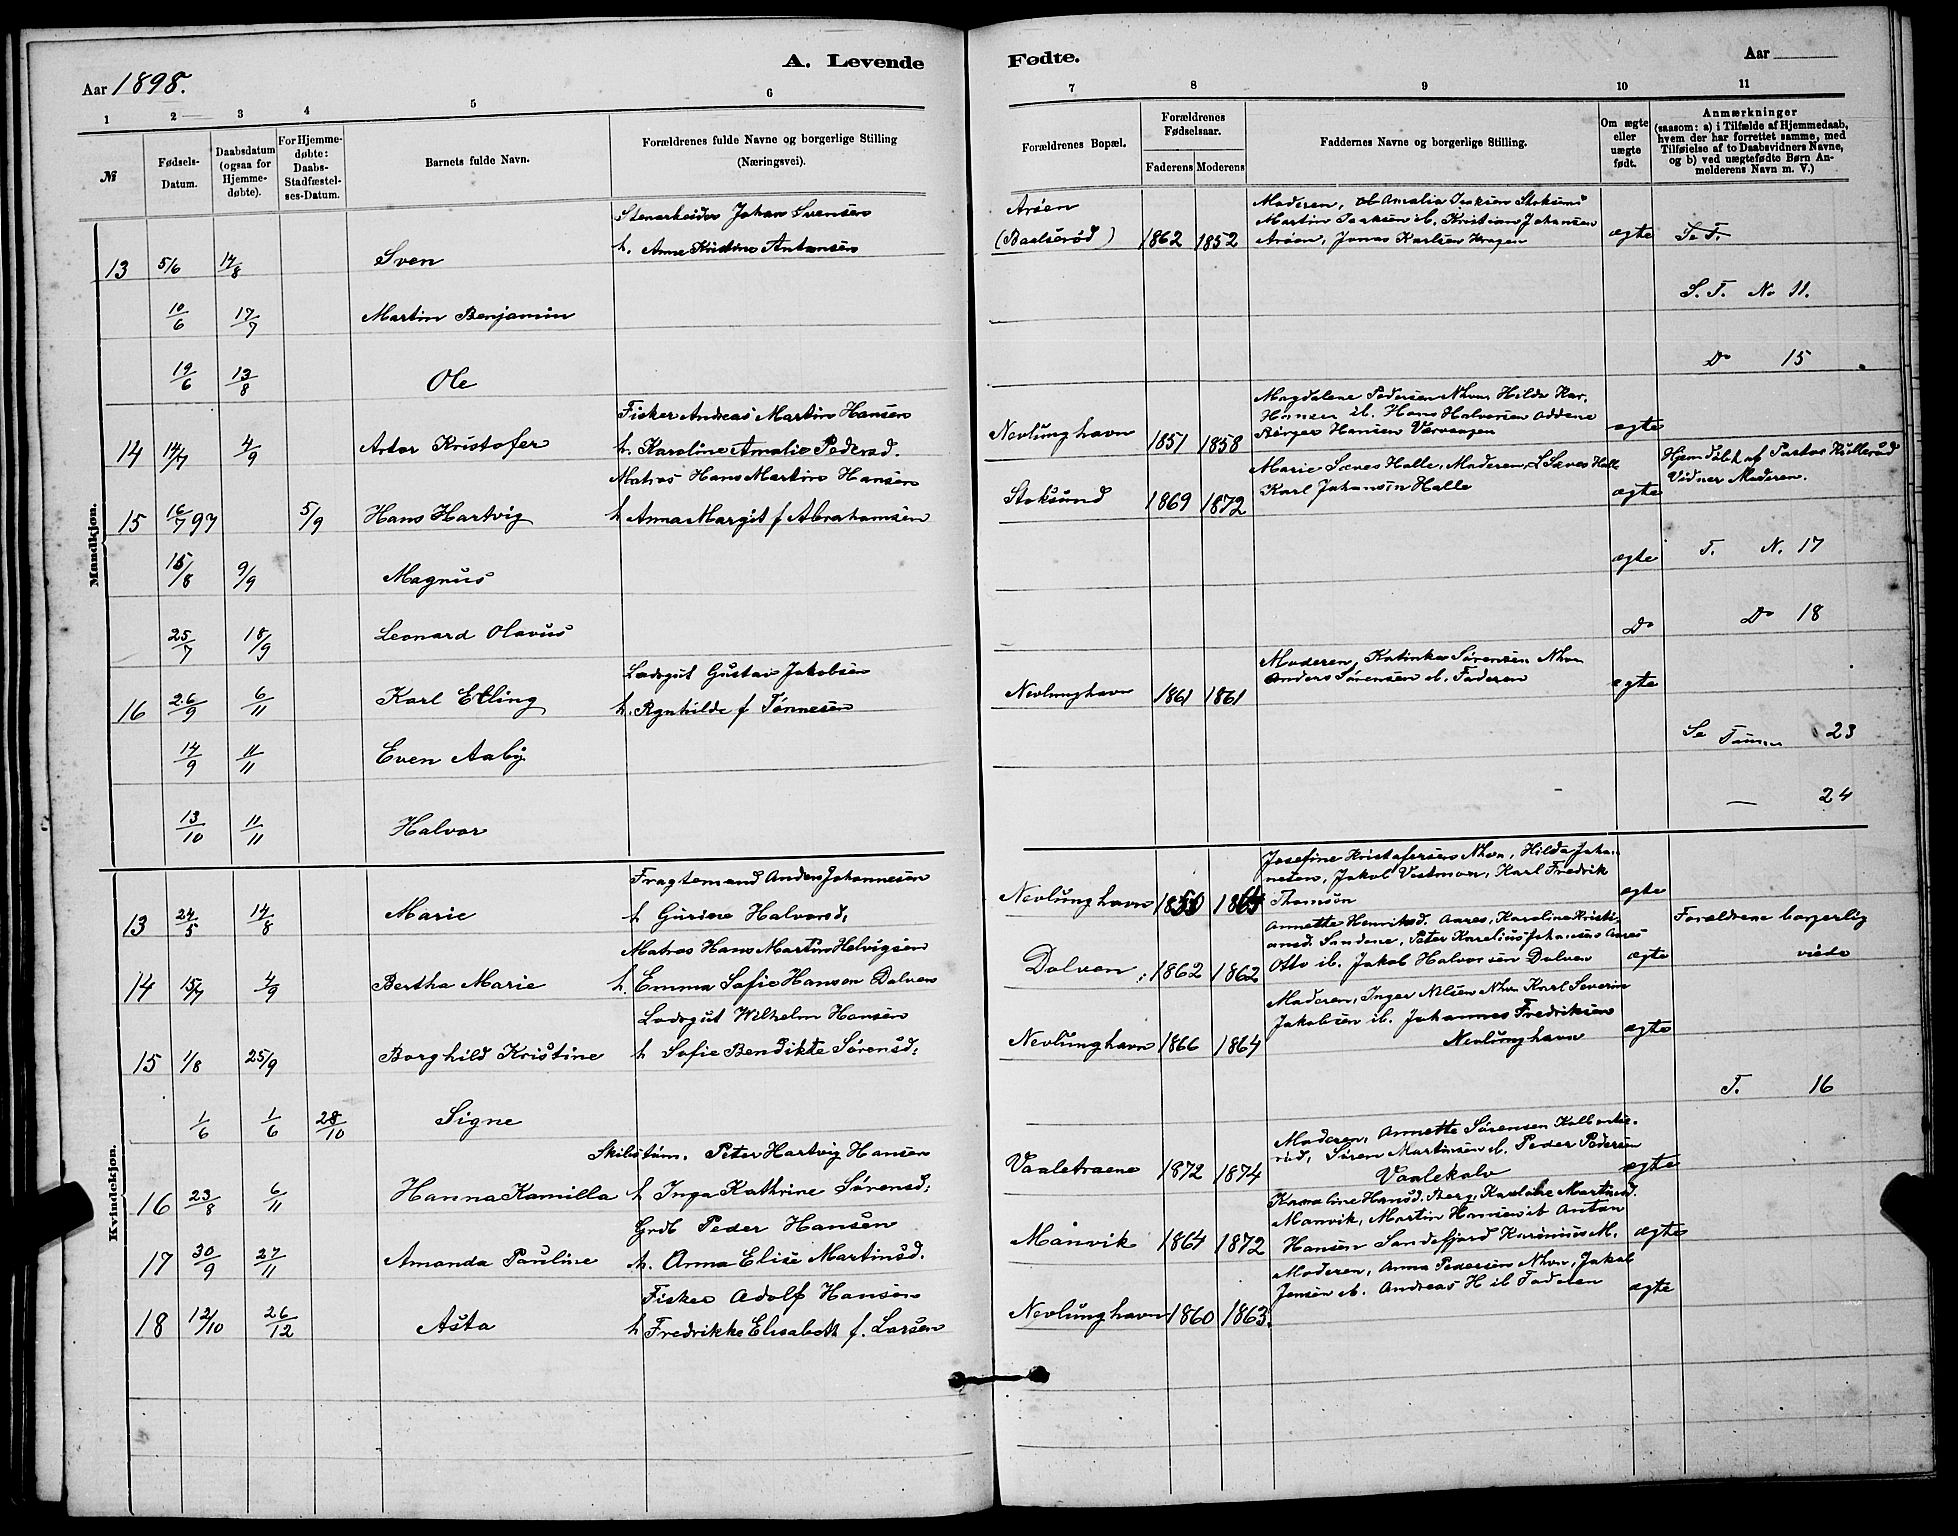 A. Levende
Aar 1898.
1 2 3 4 5 6
№
Fødsels-Datum.
Daabsdatum (ogsaa for Hjemme-døbte).
For Hjemme-døbte: Daabs-Stadfæstel-ses-Datum.
Barnets fulde Navn.
Forældrenes fulde Navne og borgerlige Stilling (Næringsvei).
Mandkjøn.
Stenarbeider Johan Svensen
13 5/6 14/8 Sven h. Anne Kristine Antonsen
10/6 17/7 Martin Benjamin
19/6 13/8 Ole
Fisker Andreas Martin Hansen
14 14/7 4/9 Artor Kristofer h. Karoline Amalie Pedersd.
Matros Hans Martin Hansen
15 16/7 97 5/9 Hans Hartvig h Anna Margit f Abrahamsen
15/8 9/9 Magnus
25/7 18/9 Leonard Olavus
Lodsgut Gustav Jakobsen
16 26/9 6/11 Karl Elling h. Ragnhilde f Tønnesen
14/9 11/11 Even Aaby
13/10 11/11 Halvor
Kvindekjøn.
Fragtemand Anders Johannesen
13 24/5 14/8 Marie h Gurine Halvorsd.
Matros Hans Martin Helvigsen
14 15/7 4/9 Bertha Marie h. Emma Sofie Hansen Dolven
Lodsgut Wilhelm Hansen
15 1/8 25/9 Borghild Kristine h Sofie Bendikte Sørensd.
1/6 1/6 28/10 Signe
Skibstøm. Peter Hartvig Hansen
16 23/8 6/11 Hanna Kamilla h Inga Kathrine Sørensd.
Grdb Peder Hansen
17 30/9 27/11 Amanda Pauline h. Anna Elise Martinsd.
Fisker Adolf Hansen
18 12/10 26/12 Asta h Fredrikke Elisabeth f. Larsen
Fødte.
Aar
7 8 9 10 11
Forældrenes Bopæl.
Forældrenes Fødselsaar.
Faderens Moderens
Faddernes Navne og borgerlige Stilling.
Om ægte eller uægte født.
Anmærkninger
(saasom: a) i Tilfælde af Hjemmedaab, hvem der har forrettet samme, med Tilføielse af to Daabsvidners Navne, og b) ved uægtefødte Børn Anmelderens Navn m. V.)
Arøen Moderen, Amalia Isaksen Stoksund
(Baalserød) 1862 1852 Martin Isaksen ib. Kristian Johansen
Arøen, Jonas Karlsen Kragen ægte Se T.
S. T. No 11.
Do 15
Magdalene Pedersen Nhvn Hilda Kar.
Nevlunghavn 1851 1858 Hansen ib. Hans Halvorsen Oddene
Børger Hansen Varvaagen ægte
Stoksund 1869 1872 Marie Sæves Halle, Moderen, L Sæves Halle
Karl Johansen Halle ægte Hjemdøbt af Pastor Kullerød
Vidner Moderen.
ægte T. N. 17
Do Do 18
Nevlunghavn 1861 1861 Moderen, Katinka Sørensen Nhvn
Anders Sørensen ib. Faderen ægte
Se Tanum 23
— 24
Josefine Kristofersen Nhvn, Hilda Johan-
Nevlunghavn 1850 1865 nesen, Jakob Vestmon, Karl Fredrik
Thomsen ægte
Annette Henriksd. Aarøs, Karoline Kristi-
Dolven 1862 1862 ansd. Sandene, Peter Kareliusjohansen Aarøs
Otto ib. Jakob Halvorsen Dolven ægte Forældrene borgerlig viede
Nevlunghavn 1866 1864 Moderen, Inger Nilsen Nhvn Karl Severin
Jakobsen ib. Johannes Fredriksen
Nevlunghavn ægte
T. 16
Vaaletraene 1872 1874 Moderen, Annette Sørensen Kolbenks-
rød, Søren Martinsen ib. Peder Pedersen
Vaalekalv ægte
Karoline Hansd. Berg, Karoline Martinsd.
Manvik 1864 1872 Manvik, Martin Hansen ib Anton
Hansen Sandefjord Karinius M. ægte
Nevlunghavn 1860 1863. Moderen, Anna Pedersen Nhvn, Jakob
Jensen ib. Andreas H ib Faderen ægte